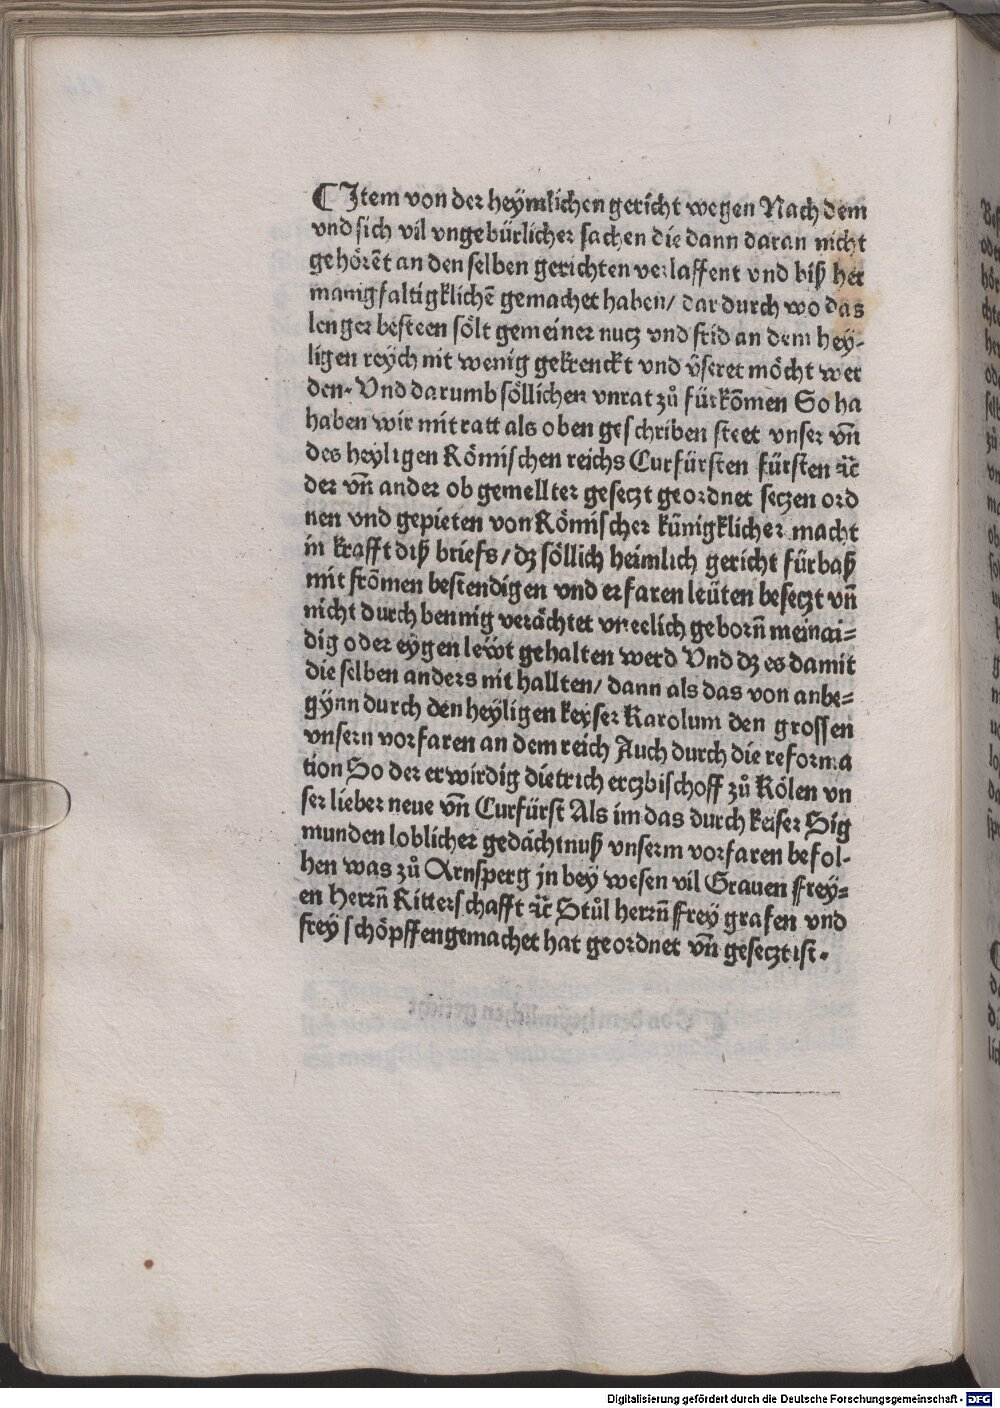 ⸿ Item von der heymlichen gericht wegen Nach dem
vnd sich vil vngebürlicher sachen die dann daran nicht
gehörēt an den selben gerichten verlaffent vnd biß her
manigfaltigklichē gemachet haben/ dar durch wo das
lenger besteen sölt gemeiner nucz vnd frid an dem hey-
ligen reych nit wenig gekrenckt vnd v̈seret möcht wer
den. Vnd darumb söllichen vnrat zů fürkōmen So ha
haben wir mit ratt als oben geschriben steet vnser vn̄
des heyligen Römischen reichs Curfürsten fürsten ꝛc̄
der vn̄ ander ob gemellter geseczt geordnet seczen ord
nen vnd gepieten von Römischer künigklicher macht
in krafft diß briefs/ dz söllich heimlich gericht fürbaß
mit frōmen bestendigen vnd erfaren leüten beseczt vn̄
nicht durch bennig verächtet vneelich geborn̄ meinai=
dig oder eygen leẅt gehalten werd Vnd dz es damit
die selben anders nit hallten/ dann als das von anbe=
gynn durch den heyligen keyser Karolum den grossen
vnsern vorfaren an dem reich Auch durch die reforma
tion So der erwirdig dietrich erczbischoff zů Kölen vn
ser lieber neue vn̄ Curfürst Als im das durch keiser Sig
munden loblicher gedächtnuß vnserm vorfaren befol-
hen was zů Arnsperg jn bey wesen vil Grauen Frey=
en Herrn̄ Ritterschafft ꝛc̄ Stůl herrn̄ frey grafen vnd
frey schöpffen gemachet hat geordnet vn̄ geseczt ist.
Digitalisierung gefördert durch die Deutsche Forschungsgemeinschaft - DFG